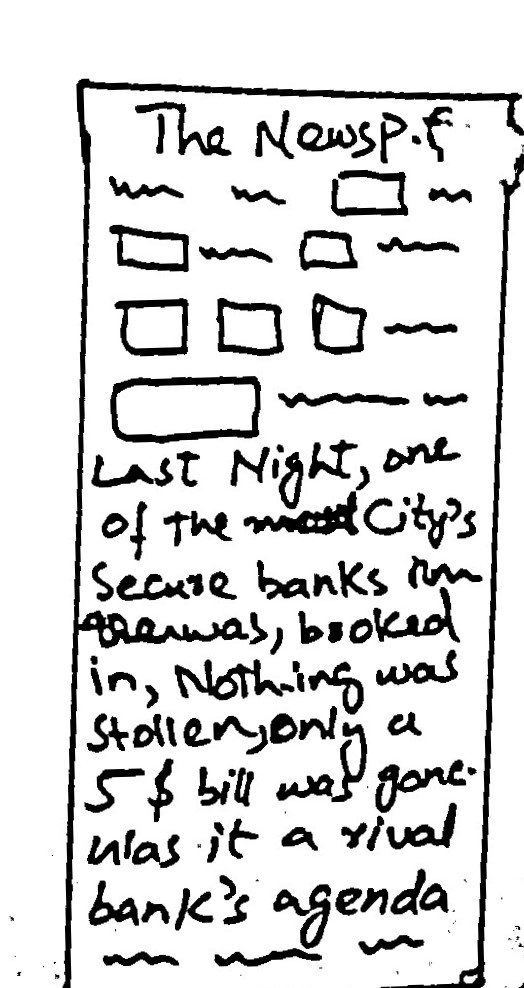 The Newsp.f
Last Night, one
of the City's
Secure banks
was, brooked
in, Nothing was
stollen, only a
5 $ bill was gone.
was it a rival
bank's agenda